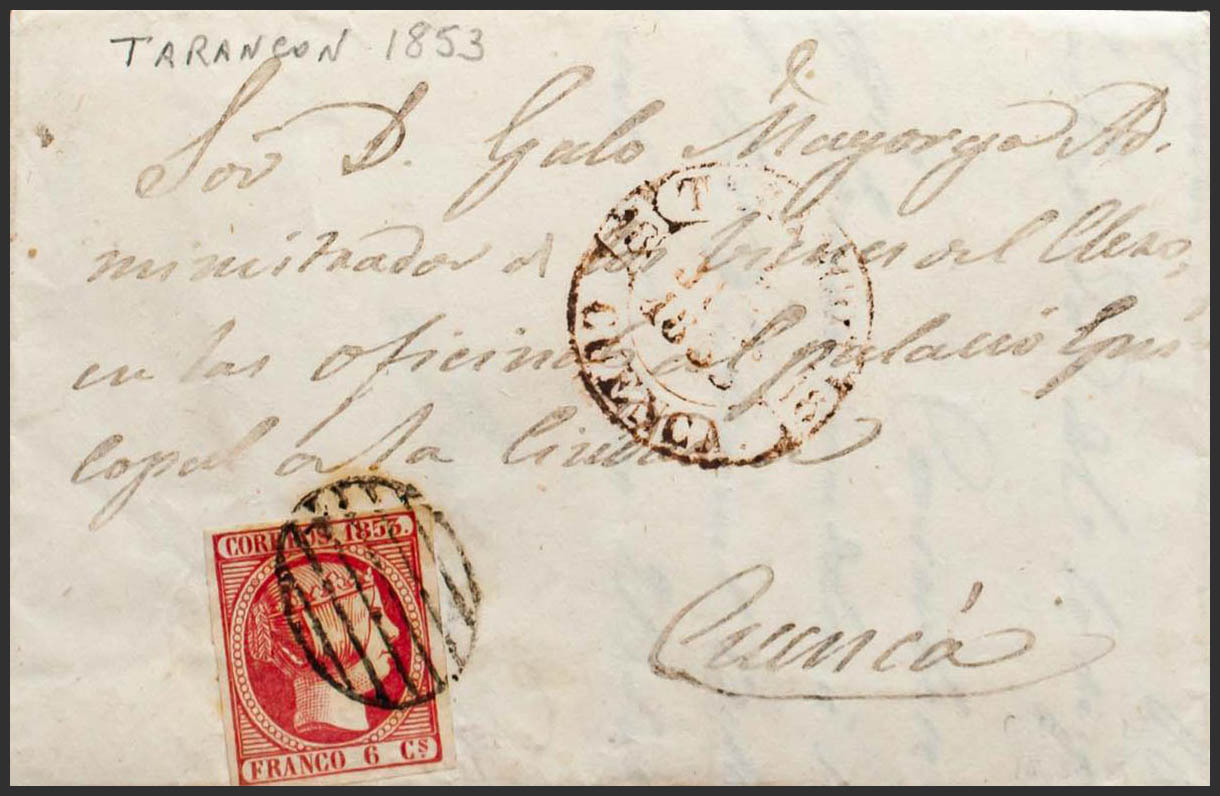 TARANCON 1853
Sor D. Galo Mayorga Ad.
ministrador de los bienes del Clero,
en las oficinas del palacio Epis-
copal de la Ciudad
Cuenca
CORREOS 1853.
FRANCO 6 Cs
CUENCA